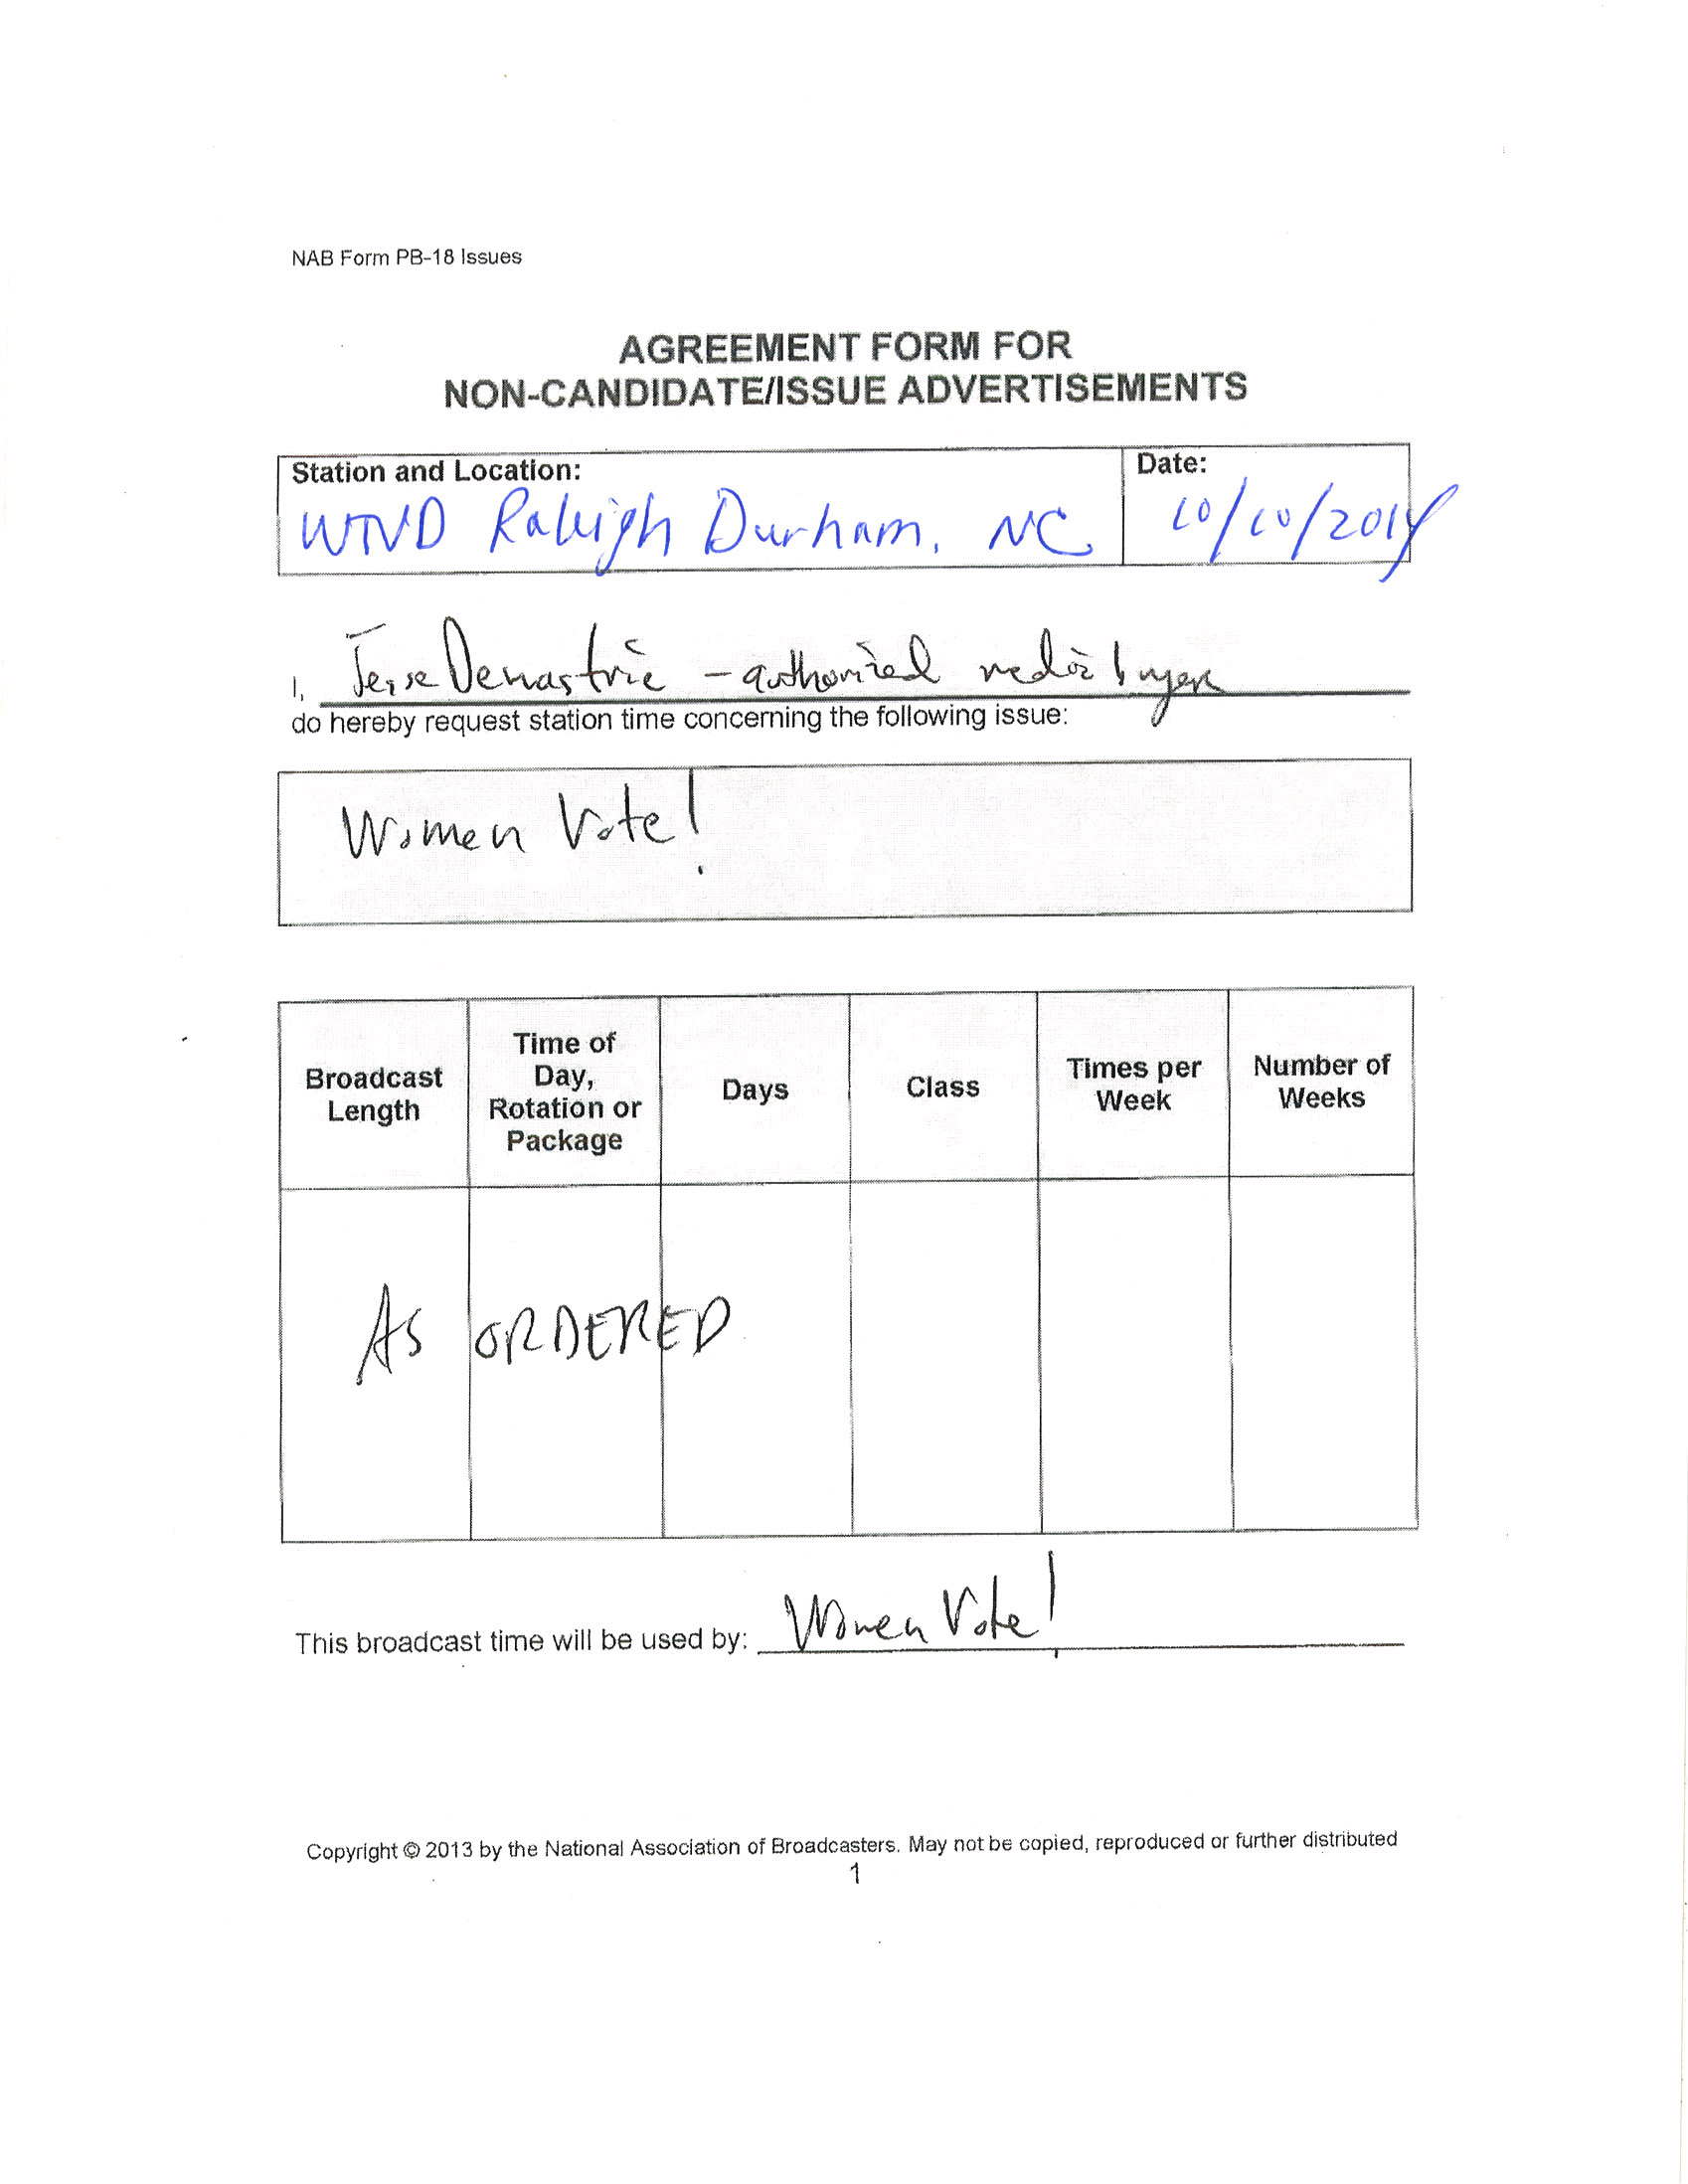 NAB Form PB-18 Issues
AGREEMENT FORM FOR
NON-CANDIDATE/ISSUE ADVERTISEMENTS
Station and Location:
Date:
WTVD Raleigh Durham, NC
10/10/2014
I, Jesse Demastrie - authorized media buyer
do hereby request station time concerning the following issue:
Women Vote!
Broadcast Length
Time of Day, Rotation or Package
Days
Class
Times per Week
Number of Weeks
AS ORDERED
This broadcast time will be used by: Women Vote!
Copyright © 2013 by the National Association of Broadcasters. May not be copied, reproduced or further distributed
1